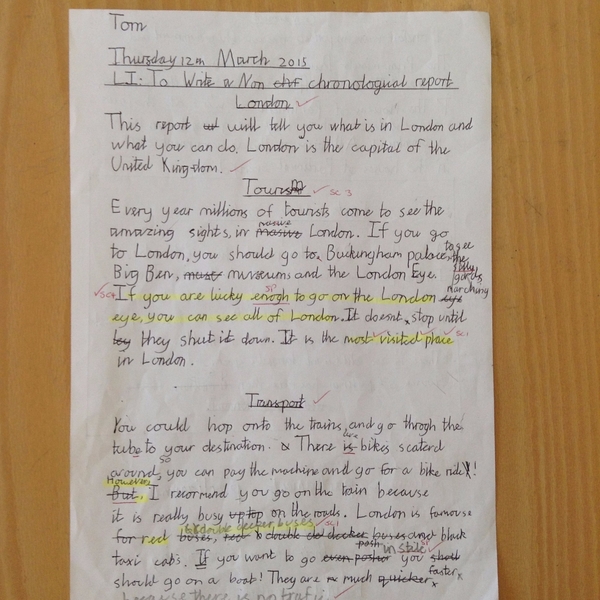 Tom
Thursday 12th March 2015
LI: To Write a Non chr chronological report
London
This report wi will tell you what is in London and
what you can do. London is the capital of the
United Kingdom.
Tourism sc 3
Every year millions of tourists come to see the
massive
amazing sights, in masive London. If you go
to London, you should go to Buckingham palace to see the
silly guards marching
Big Ben, musu museums and the London Eye.
sp
sc4 If you are lucky enogh to go on the London eye
eye, you can see all of London. It doesnt stop until
they they shut it down. It is the most visited place sc1
in London.
Transport
You could hop onto the trains, and go throgh the
are
tube to your destination. There is bikes scaterd
so
around, you can pay the machine and go for a bike ride!
However,
But, I recormend you go on the train because
it is really busy up top on the roads. London is famouse
double decker buses sc1
for red buses, red double dec decker buses and black
posh in style
taxi cab's. If you want to go even posher you shoul
faster
should go on a boat! They are much quicker
because there is no trafic